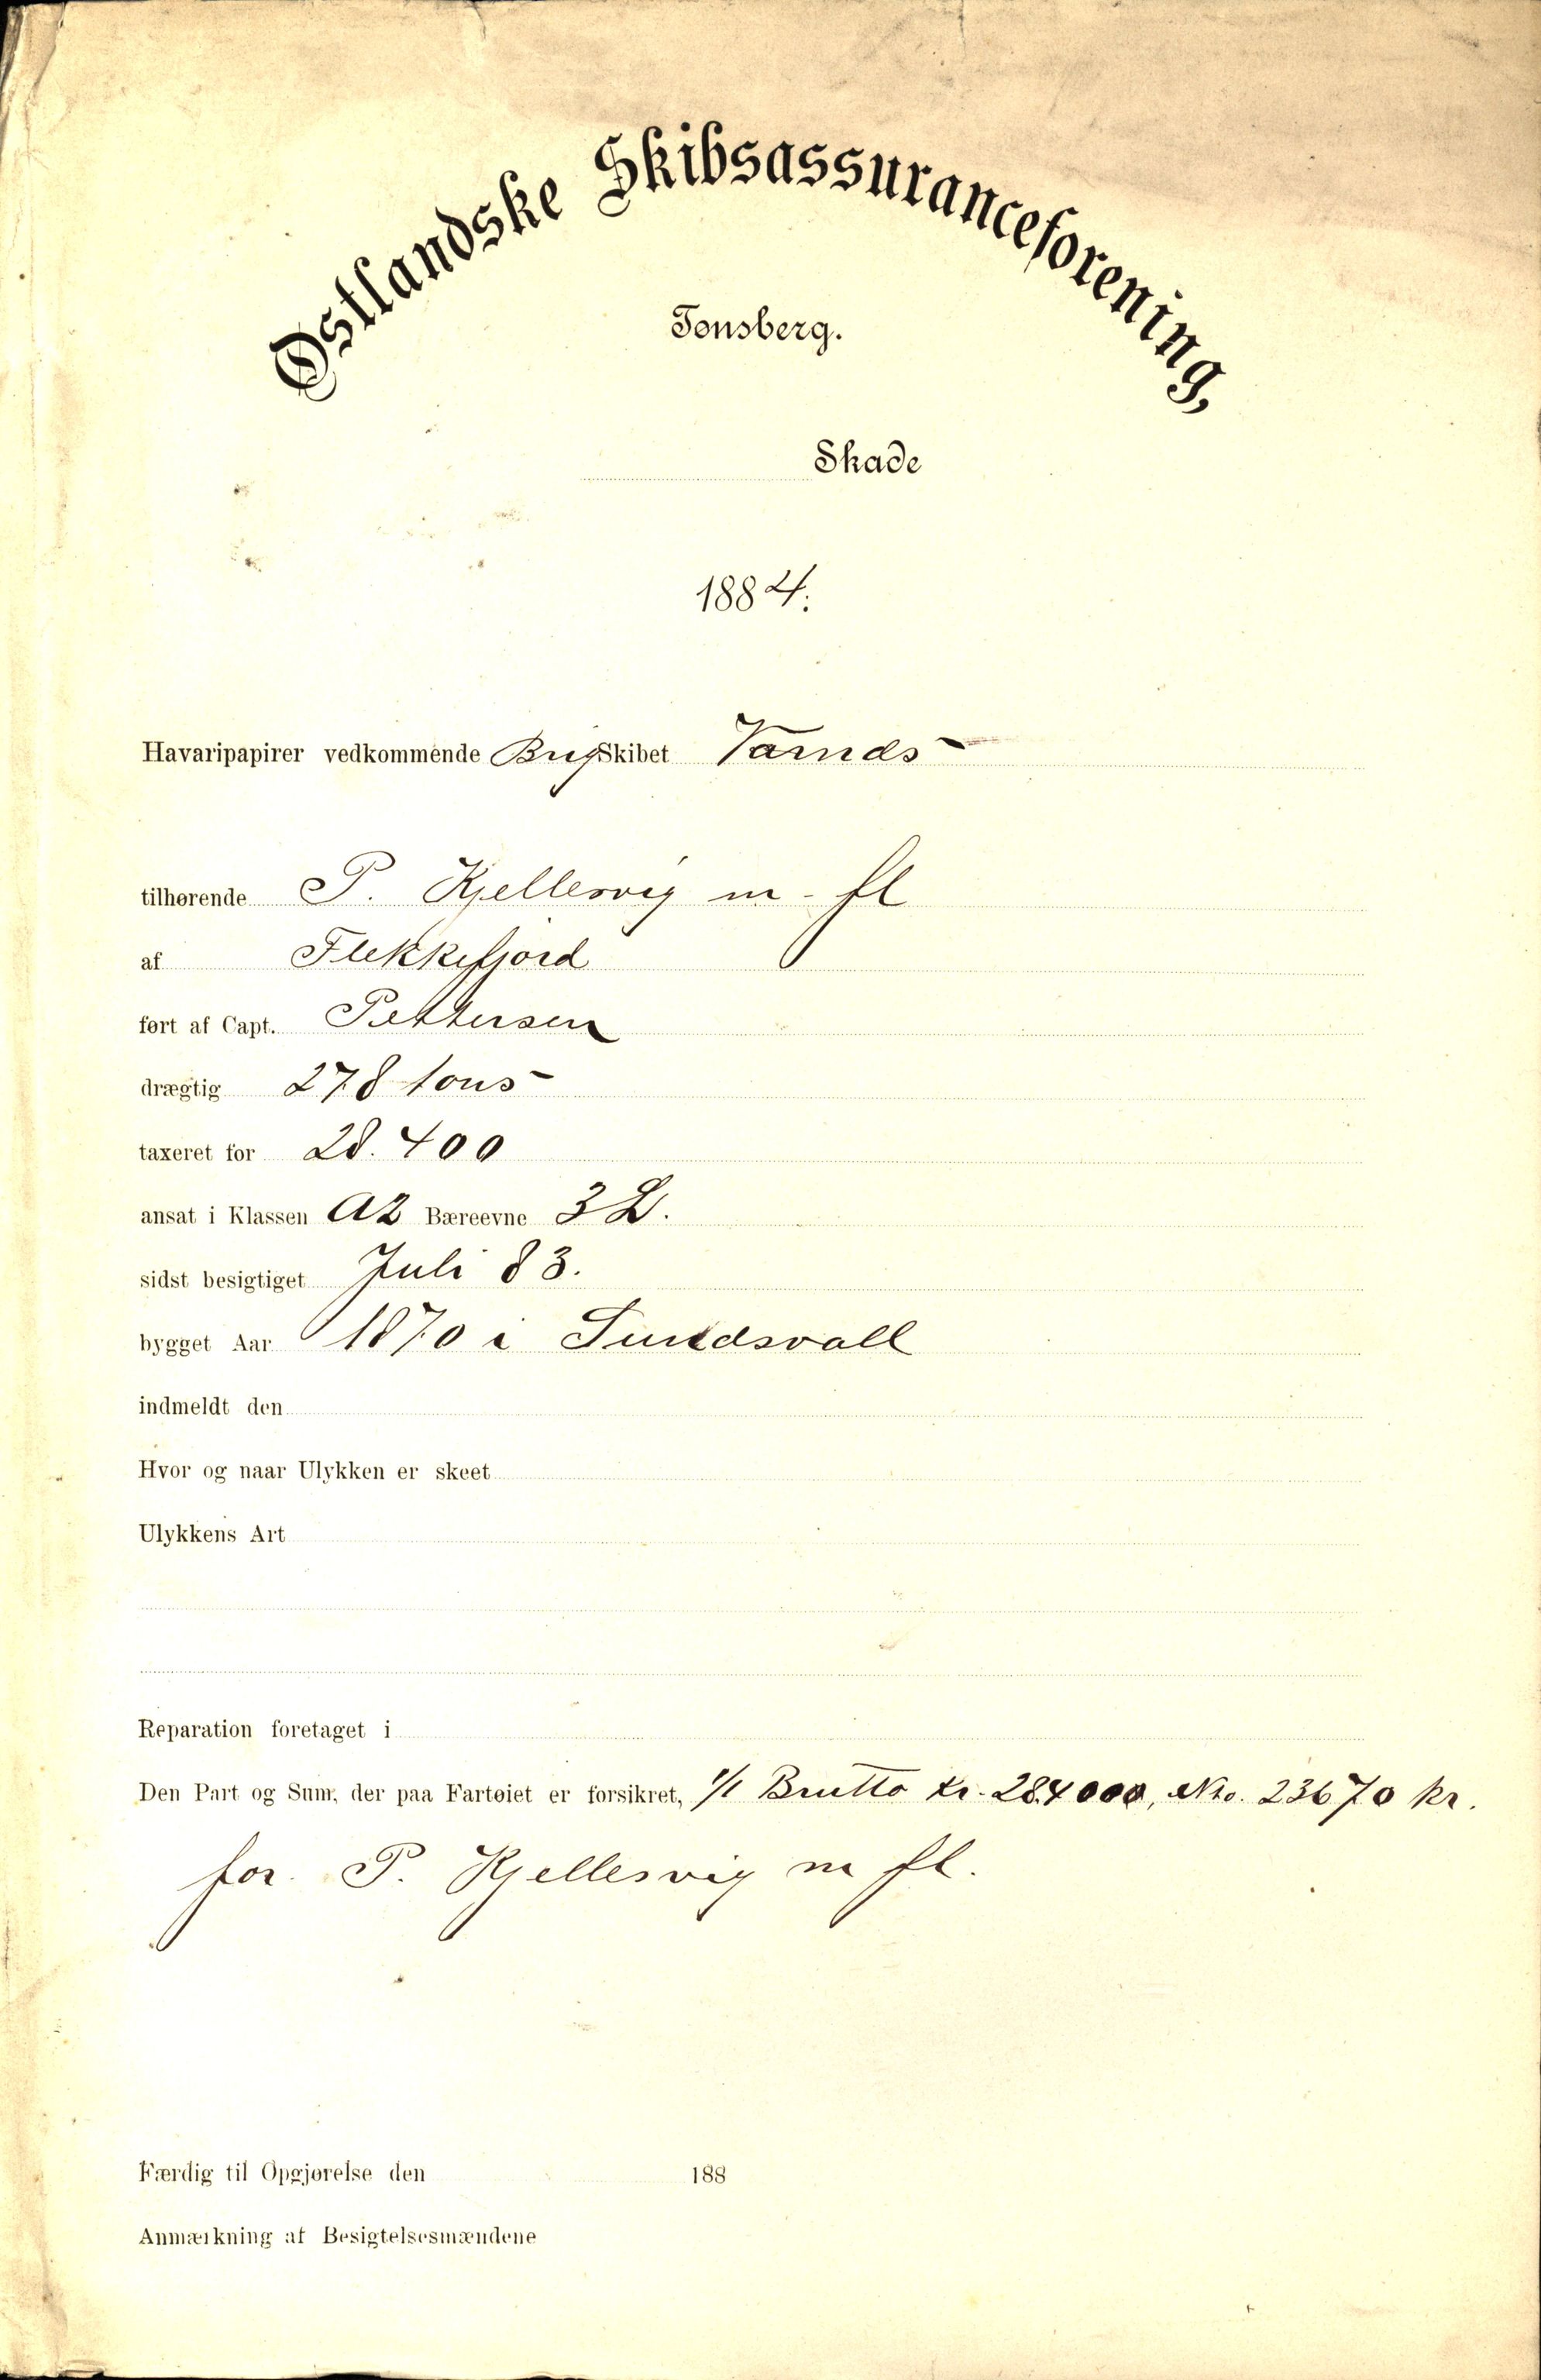 Østlandske Skibsassuranceforening,
Tønsberg.
Skade
1884.
Havaripapirer vedkommende Brig Skibet Varnæs
tilhørende P. Kjellesvig m. fl
af Flekkefjord
ført af Capt. Pettersen
drægtig 278 tons
taxeret for 28.400
ansat i Klassen A2 Bæreevne 3 L.
sidst besigtiget Juli 83.
bygget Aar 1870 i Sundsvall
indmeldt den
Hvor og naar Ulykken er skeet
Ulykkens Art
Reparation foretaget i
Den Part og Sum, der paa Fartøiet er forsikret, 1/1 Brutto Kr. 284000, Nto. 23670 Kr.
for P. Kjellesvig m fl.
Færdig til Opgjørelse den 188
Anmærkning af Besigtelsesmændene